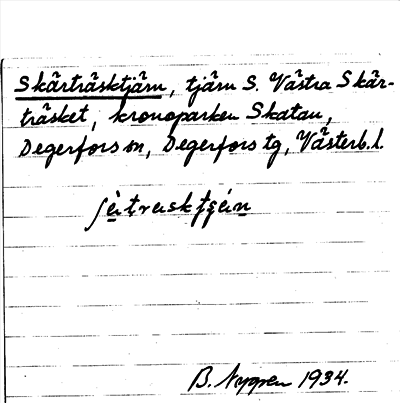 Skärträsktjärn, tjärn S. Västra Skär-
träsket, kronoparken Skatan,
Degerfors sn, Degerfors tg, Västerb. l.
B. Nygren 1934.